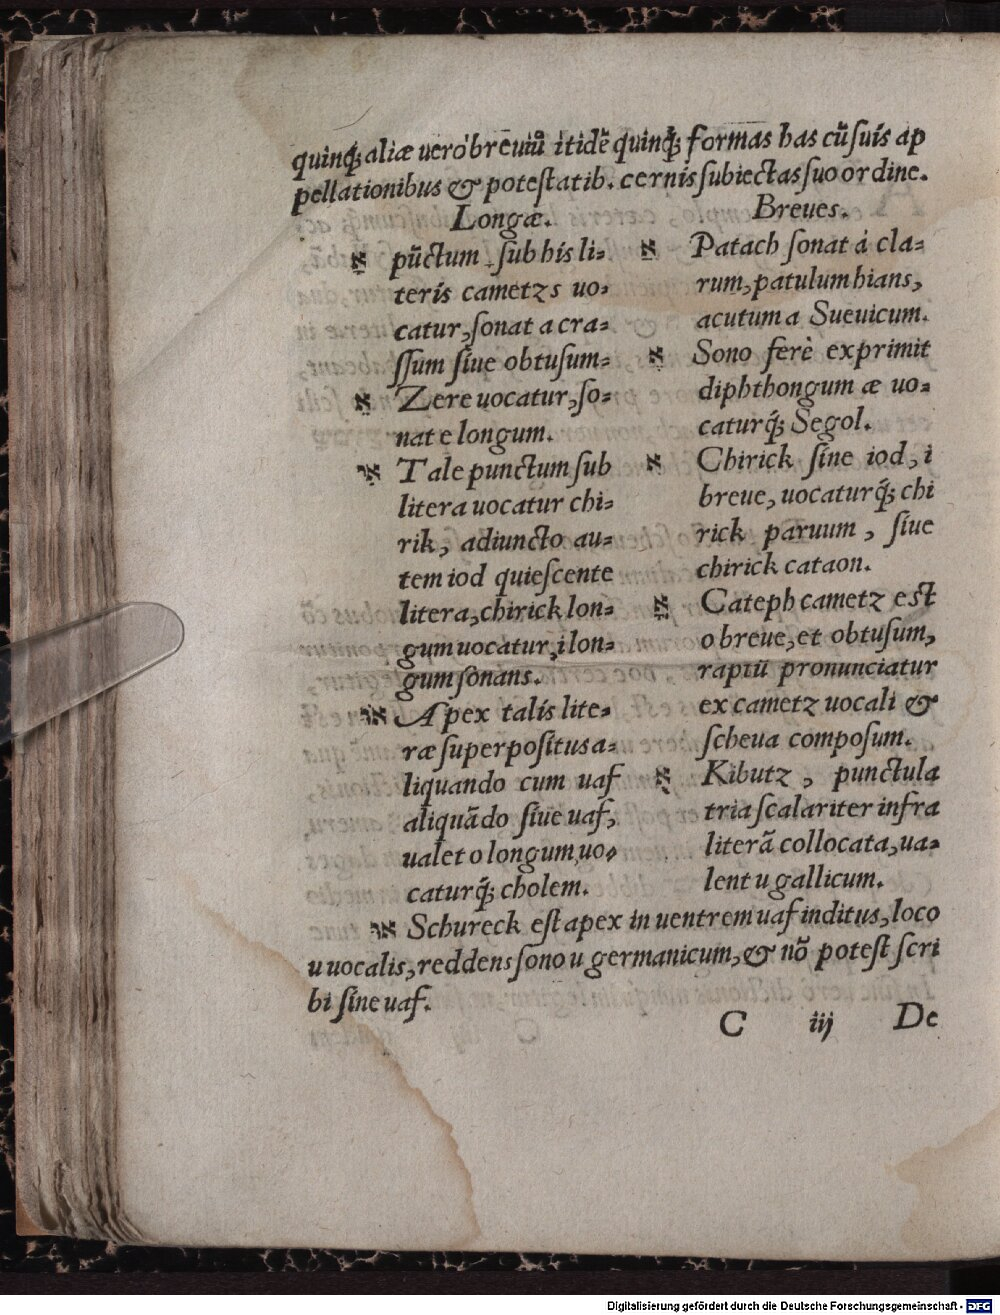 quinq́ꝫ aliæ uero breuiũ itidẽ quinq́ꝫ formas has cũ suis ap
pellationibus & potestatib. cernis subiectas suo ordine.
Longæ.
אָ pũctum sub his li-
teris cametzs uo-
catur, sonat a cra-
ssum siue obtusum-
אֵ Zere uocatur, so-
nat e longum.
אִי Tale punctum sub
litera uocatur chi-
rik, adiuncto au-
tem iod quiescente
litera, chirick lon-
gum uocatur, i lon-
gum sonans.
אוֹ Apex talis lite-
ræ superpositus a-
liquando cum uaf
aliquãdo siue uaf,
ualet o longum uo-
caturq́ꝫ cholem.
Breues.
אַ Patach sonat á cla-
rum, patulum hians,
acutum a Sueuicum.
אֶ Sono ferè exprimit
diphthongum æ uo-
caturq́ꝫ Segol.
אִ Chirick sine iod, i
breue, uocaturq́ꝫ chi
rick paruum, siue
chirick cataon.
אֳ Cateph cametz est
o breue, et obtusum,
raptũ pronunciatur
ex cametz uocali &
scheua composum.
אֻ Kibutz, punctula
tria scalariter infra
literã collocata, ua-
lent u gallicum.
אוּ Schureck est apex in uentrem uaf inditus, loco
u uocalis, reddens sono u germanicum, & nõ potest scri
bi sine uaf.
C iij De
Digitalisierung gefördert durch die Deutsche Forschungsgemeinschaft - DFG